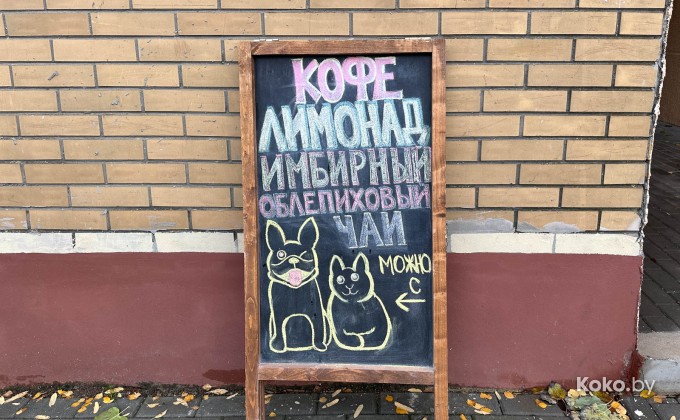 КОФЕ
ЛИМОНАД
ИМБИРНЫЙ
ОБЛЕПИХОВЫЙ
ЧАЙ
МОЖНО
С
Koko.by